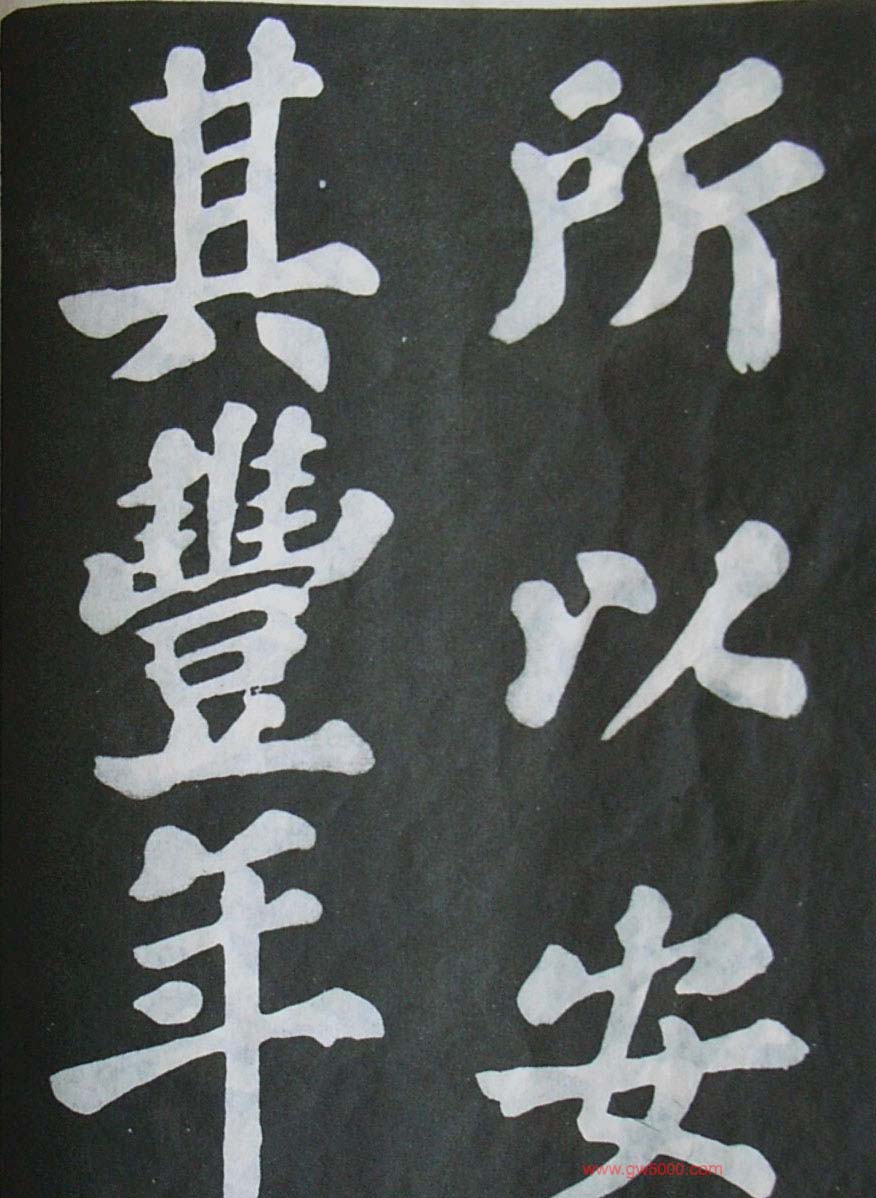 所以安
其豐年
www.gw5000.com